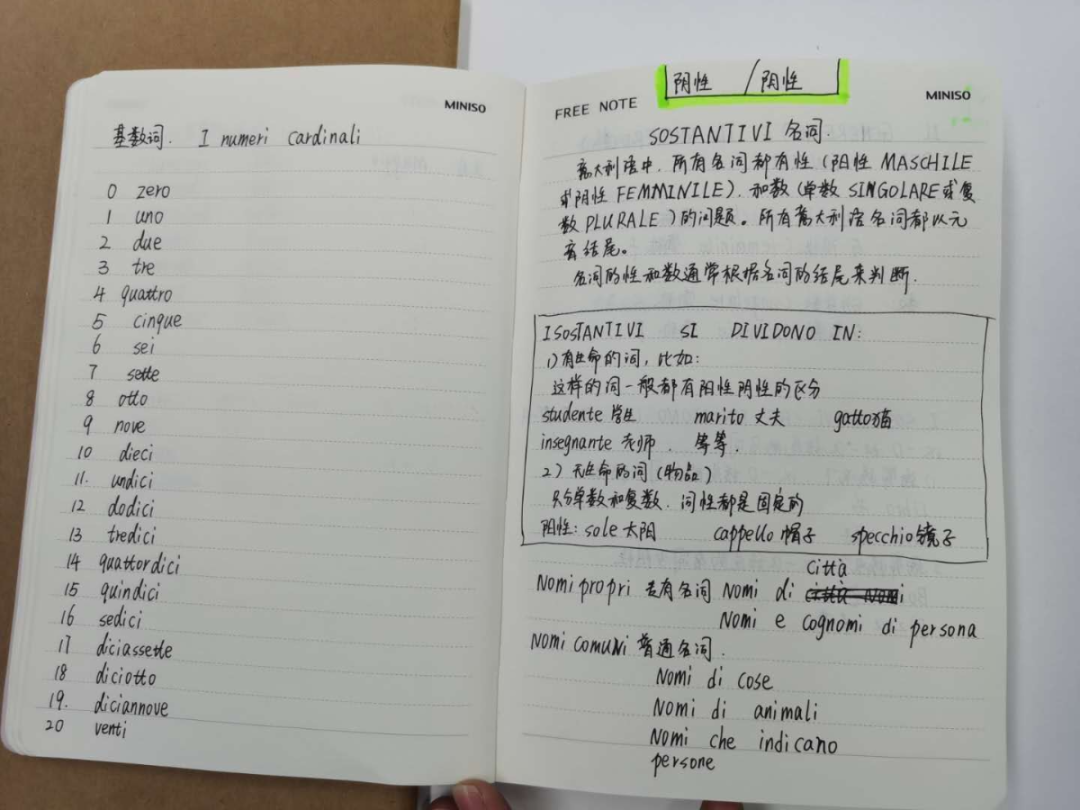 MINISO
基数词. I numeri cardinali
0 zero
1 uno
2 due
3 tre
4 quattro
5 cinque
6 sei
7 sette
8 otto
9 nove
10 dieci
11. undici
12 dodici
13 tredici
14 quattordici
15 quindici
16 sedici
17 diciassette
18 diciotto
19. diciannove
20 venti
FREE NOTE
阴性 / 阴性
MINISO
SOSTANTIVI 名词.
意大利语中，所有名词都有性（阳性 MASCHILE
或阴性 FEMMINILE）. 和数（单数 SINGOLARE 或复
数 PLURALE ）的问题。所有意大利语名词都以元
音结尾。
名词的性和数通常根据名词的结尾来判断.
I SOSTANTIVI SI DIVIDONO IN:
1) 有生命的词，比如:
这样的词一般都有阳性阴性的区分
studente 学生 marito 丈夫 gatto 猫
insegnante 老师 . 等等.
2) 无生命的词（物品）
只分单数和复数. 词性都是固定的
阳性: sole 太阳 cappello 帽子 specchio 镜子
Nomi propri 专有名词 Nomi di città
Nomi e cognomi di persona
Nomi comuni 普通名词.
Nomi di cose
Nomi di animali
Nomi che indicano
persone